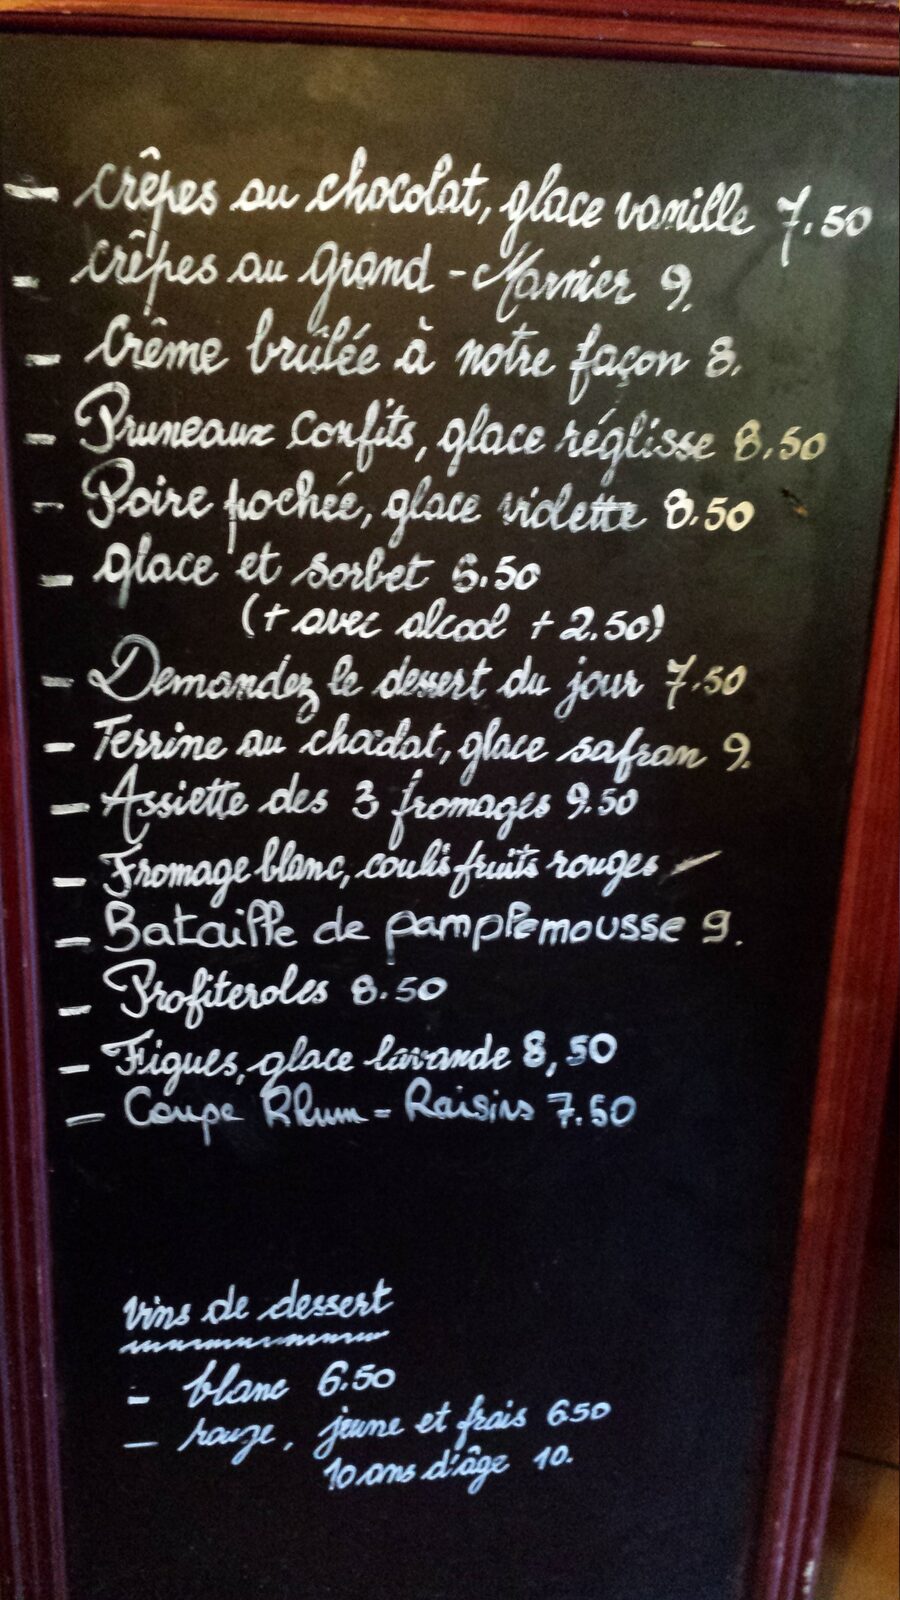 - crêpes au chocolat, glace vanille 7.50
- crêpes au Grand-Marnier 9.
- Crême brûlée à notre façon 8.
- Pruneaux confits, glace réglisse 8.50
- Poire pochée, glace violette 8.50
- glace et sorbet 6.50
(+ avec alcool + 2.50)
- Demandez le dessert du jour 7.50
- Terrine au chocolat, glace safran 9.
- Assiette des 3 fromages 9.50
- Fromage blanc, coulis fruits rouges
- Bataille de pamplemousse 9.
- Profiteroles 8.50
- Figues, glace lavande 8,50
- Coupe Rhum - Raisins 7.50
vins de dessert
- blanc 6.50
- rouge, jeune et frais 6.50
10 ans d'âge 10.